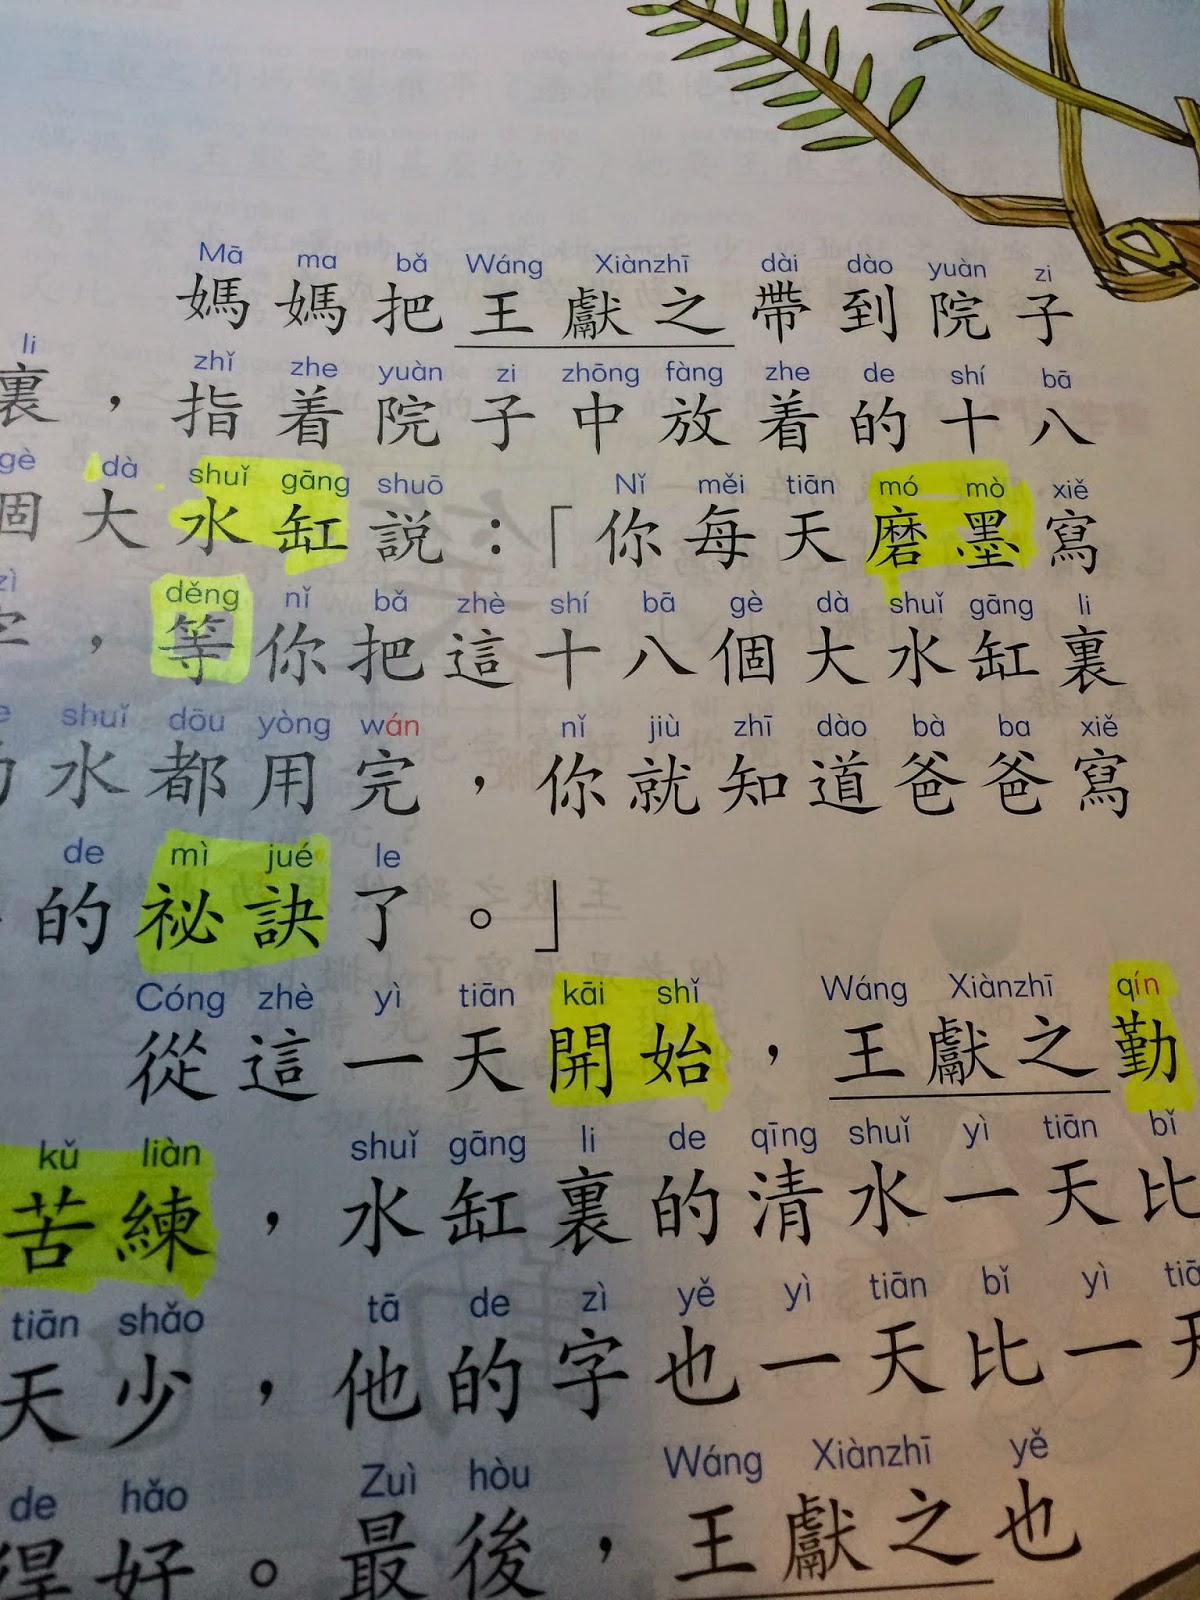 Mā ma bǎ Wáng Xiànzhī dài dào yuàn zi
媽媽把王獻之帶到院子
li zhǐ zhe yuàn zi zhōng fàng zhe de shí bā
裏，指着院子中放着的十八
gè dà shuǐ gāng shuō Nǐ měi tiān mó mò xiě
個大水缸説：「你每天磨墨寫
zì děng nǐ bǎ zhè shí bā gè dà shuǐ gāng li
字，等你把這十八個大水缸裏
shuǐ dōu yòng wán nǐ jiù zhī dào bà ba xiě
水都用完，你就知道爸爸寫
de mì jué le
的祕訣了。」
Cóng zhè yì tiān kāi shǐ Wáng Xiànzhī qín
從這一天開始，王獻之勤
kǔ liàn shuǐ gāng li de qīng shuǐ yì tiān bǐ
苦練，水缸裏的清水一天比
tiān shǎo tā de zì yě yì tiān bǐ yì tiā
天少，他的字也一天比一天
de hǎo Zuì hòu Wáng Xiànzhī yě
得好。最後，王獻之也